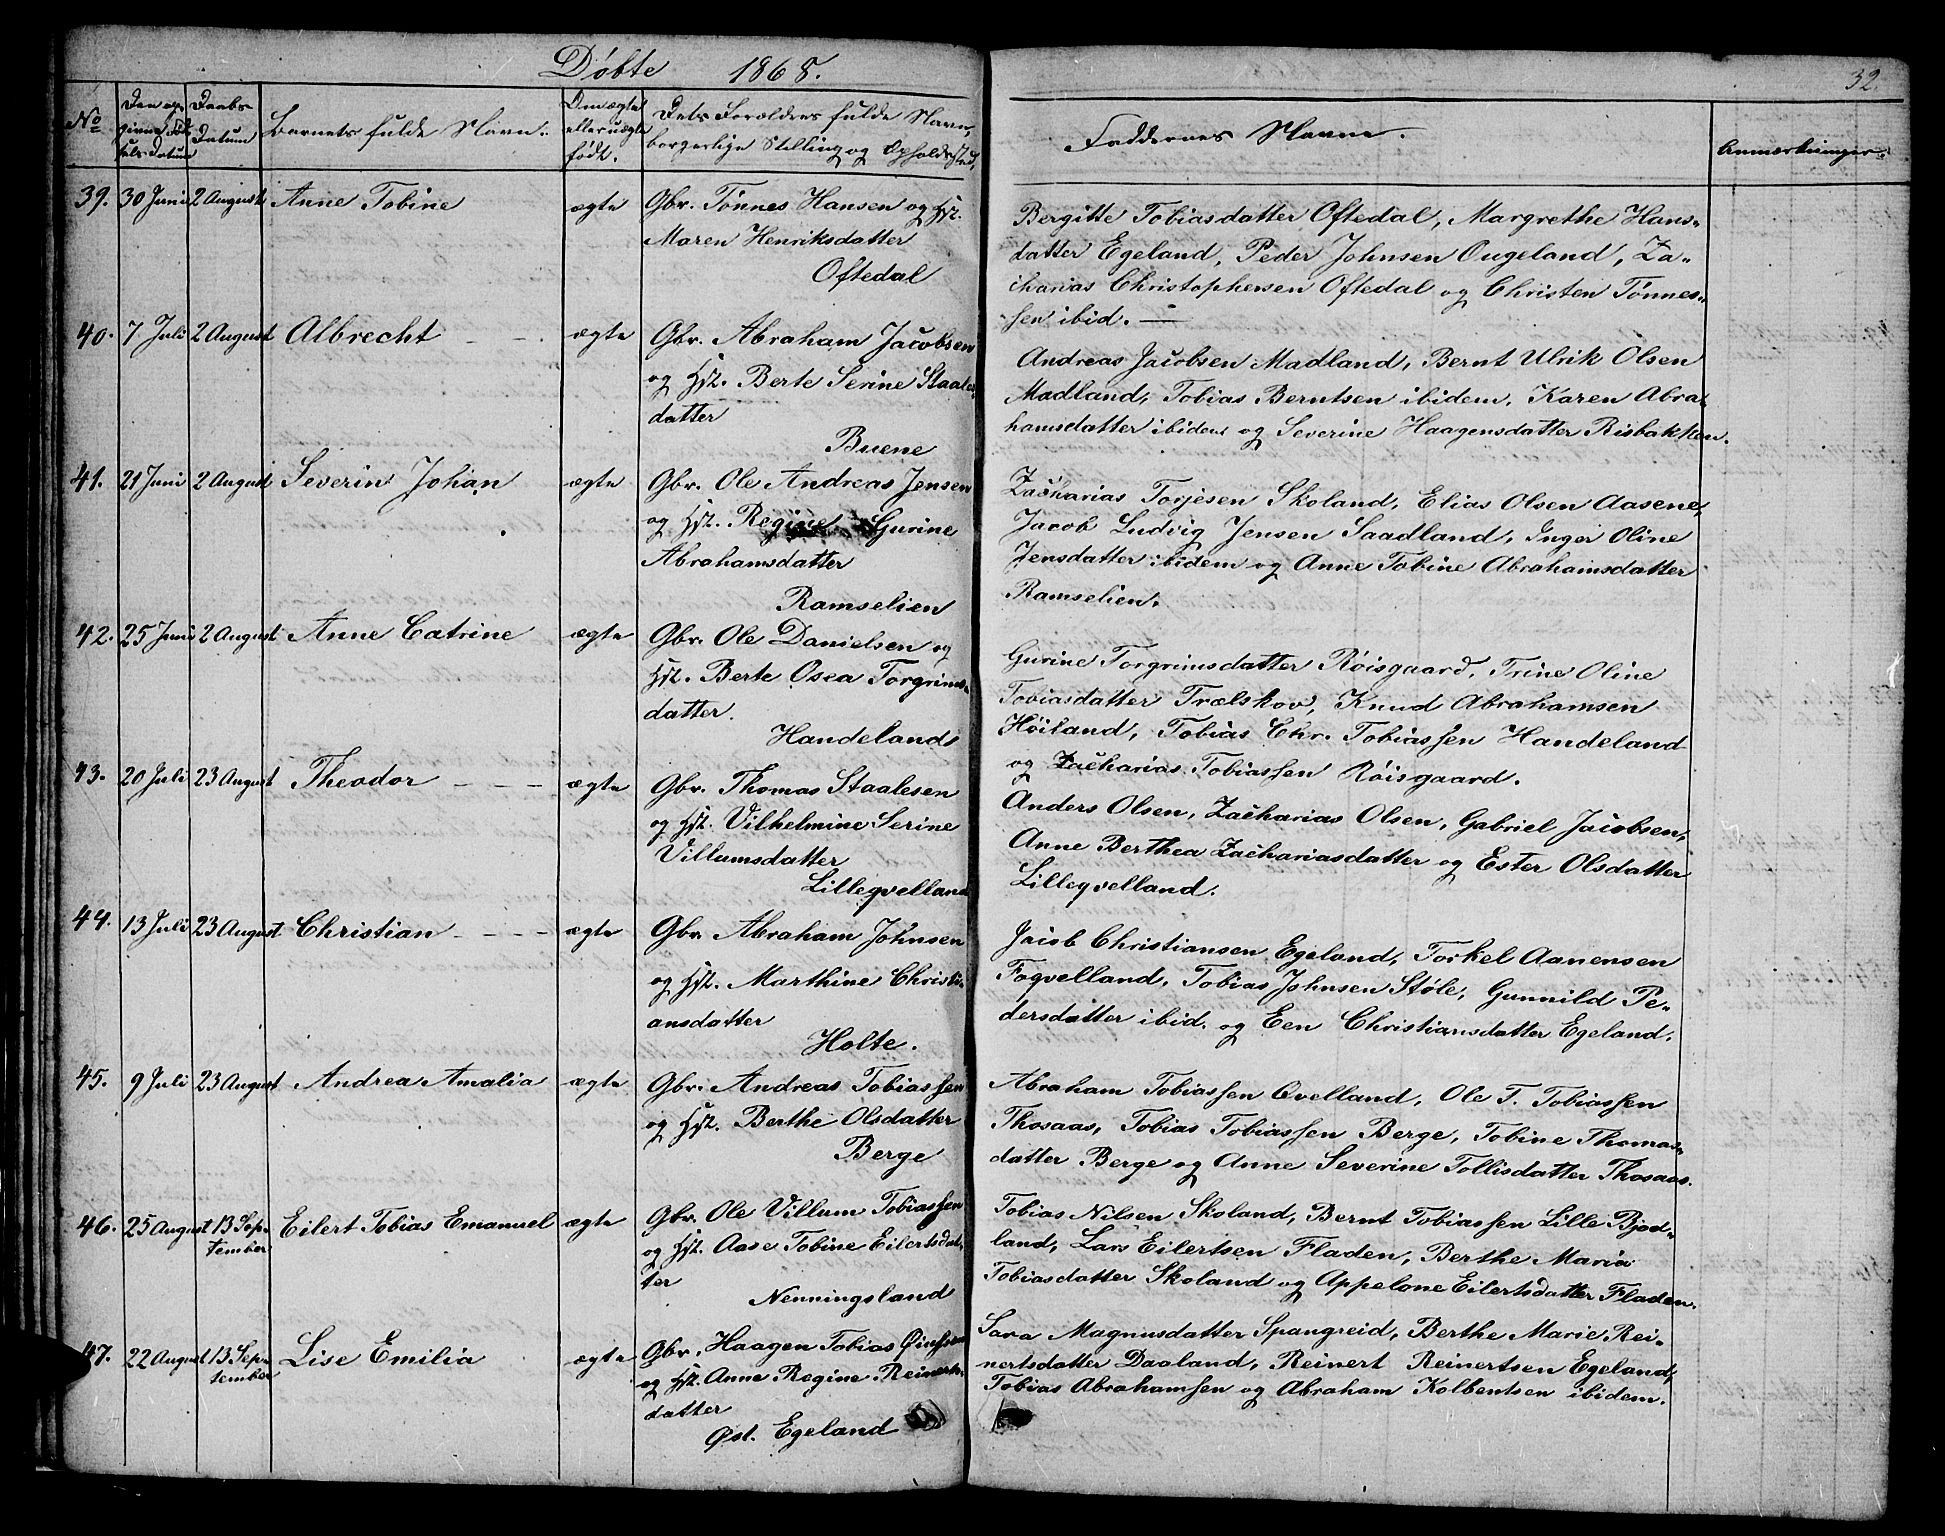 Døbte 1868.
32.
No
Den op-
givne Fød-
sels Datum
Daabs
Datum
Barnets fulde Navn.
Om ægte
eller uægte
født.
Dets Forældres fulde Navn,
borgerlige Stilling og Opholdssted.
Faddernes Navne.
Anmærkninger.
39. 30 Juni 2 August Anne Tobine ægte Gbr. Tönnes Hansen og Hst.
Maren Henriksdatter
Oftedal
Bergitte Tobiasdatter Oftedal, Margrethe Hans-
datter Egeland, Peder Johnsen Ougeland, Za-
charias Christophersen Oftedal og Christen Tönnes-
sen ibid. —
40. 7 Juli 2 August Albrecht - - . ægte Gbr. Abraham Jacobsen
og Hst. Berte Serine Staales-
datter
Buene
Andreas Jacobsen Madland, Bernt Ulrik Olsen
Madland, Tobias Berntsen ibidem, Karen Abra-
hamsdatter ibidem og Severine Haagensdatter Risbakken.
41. 21 Juni 2 August Severin Johan ægte Gbr. Ole Andreas Jensen
og Hst. Regine Gurine
Abrahamsdatter
Ramselien
Zacharias Torjesen Skoland, Elias Olsen Aasene,
Jacob Ludvig Jensen Saadland, Inger Oline
Jensdatter ibidem og Anne Tobine Abrahamsdatter
Ramselien.
42. 25 Juni 2 August Anne Catrine ægte Gbr. Ole Danielsen og
Hst. Berte Osea Torgrims-
datter.
Handelands
Gurine Torgrimsdatter Röisgaard, Trine Oline
Tobiasdatter Trælskov, Knud Abrahamsen
Höiland, Tobias Chr. Tobiassen Handeland
og Zacharias Tobiassen Röisgaard.
43. 20 Juli 23 August Theodor - - - ægte Gbr. Thomas Staalesen
og Hst. Vilhelmine Serine
Villumsdatter
Lilleqvelland
Anders Olsen, Zacharias Olsen, Gabriel Jacobsen,
Anne Berthea Zachariasdatter og Ester Olsdatter
Lilleqvelland.
44. 13 Juli 23 August Christian - - - - ægte Gbr. Abraham Johnsen
og Hst. Marthine Christi-
ansdatter
Holte.
Jacob Christiansen Egeland, Torkel Aanensen
Foqvelland, Tobias Johnsen Støle, Gunnild Pe-
dersdatter ibid. og Een Christiansdatter Egeland.
45. 9 Juli 23 August Andrea Amalia ægte Gbr. Andreas Tobiassen
og Hst. Berthe Olsdatter
Berge
Abraham Tobiassen Qvelland, Ole T. Tobiassen
Thosaas, Tobias Tobiassen Berge, Tobine Thomas-
datter Berge og Anne Severine Tollisdatter Thosaas.
46. 25 August 13 Sep-
tember Eilert Tobias Emanuel ægte Gbr. Ole Villum Tobiassen
og Hst. Aase Tobine Eilertsdat-
ter
Nenningsland
Tobias Nilsen Skoland, Bernt Tobiassen Lille Bjod-
land, Lars Eilertsen Fladen, Berthe Maria
Tobiasdatter Skoland og Appelone Eilertsdatter Fladen.
47. 22 August 13 Sep-
tember Lise Emilia ægte Gbr. Haagen Tobias
og Hst. Anne Regine Reinerts-
datter
Øst. Egeland
Sara Magnusdatter Spangreid, Berthe Marie Rei-
nertsdatter Daaland, Reinert Reinertsen Egeland,
Tobias Abrahamsen og Abraham Kolbentsen ibidem.